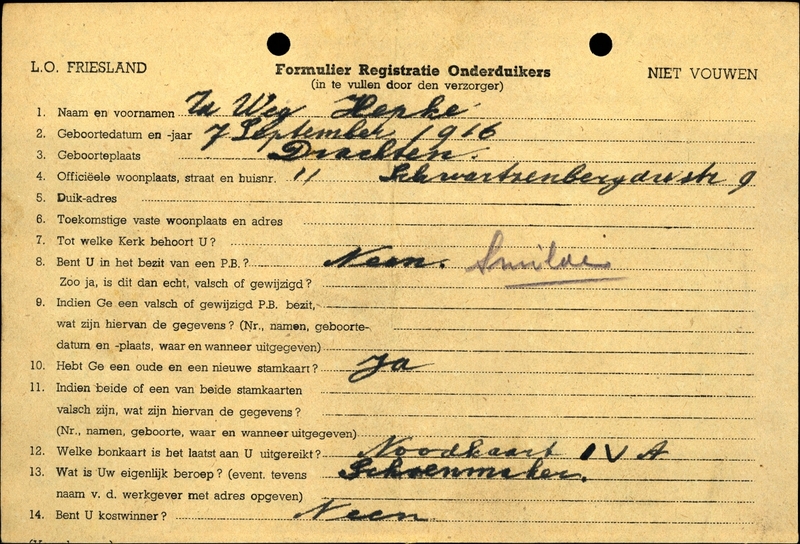 L.O. FRIESLAND
Formulier Registratie Onderduikers
NIET VOUWEN
(in te vullen door den verzorger)
1. Naam en voornamen Hepke
2. Geboortedatum en -jaar 7 September 1916
3. Geboorteplaats Drachten.
4. Officiëele woonplaats, straat en huisnr. " 9
5. Duik-adres
6. Toekomstige vaste woonplaats en adres
7. Tot welke Kerk behoort U?
8. Bent U in het bezit van een P.B.? Neen. Smilde
Zoo ja, is dit dan echt, valsch of gewijzigd?
9. Indien Ge een valsch of gewijzigd P.B. bezit,
wat zijn hiervan de gegevens? (Nr., namen, geboorte-
datum en -plaats, waar en wanneer uitgegeven)
10. Hebt Ge een oude en een nieuwe stamkaart? Ja
11. Indien beide of een van beide stamkaarten
valsch zijn, wat zijn hiervan de gegevens?
(Nr., namen, geboorte, waar en wanneer uitgegeven)
12. Welke bonkaart is het laatst aan U uitgereikt? Noodkaart IV A
13. Wat is Uw eigenlijk beroep? (event. tevens Schoenmaker.
naam v. d. werkgever met adres opgeven)
14. Bent U kostwinner? Neen